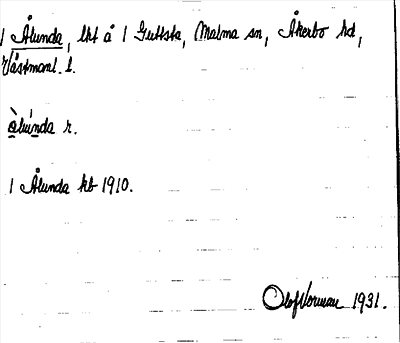 1 Ålunda, lht å 1 Guttsta, Malma sn, Åkerbo hd,
Västmanl. l.
òlúnda r.
1 Ålunda kb 1910.
Olof Norman 1931.